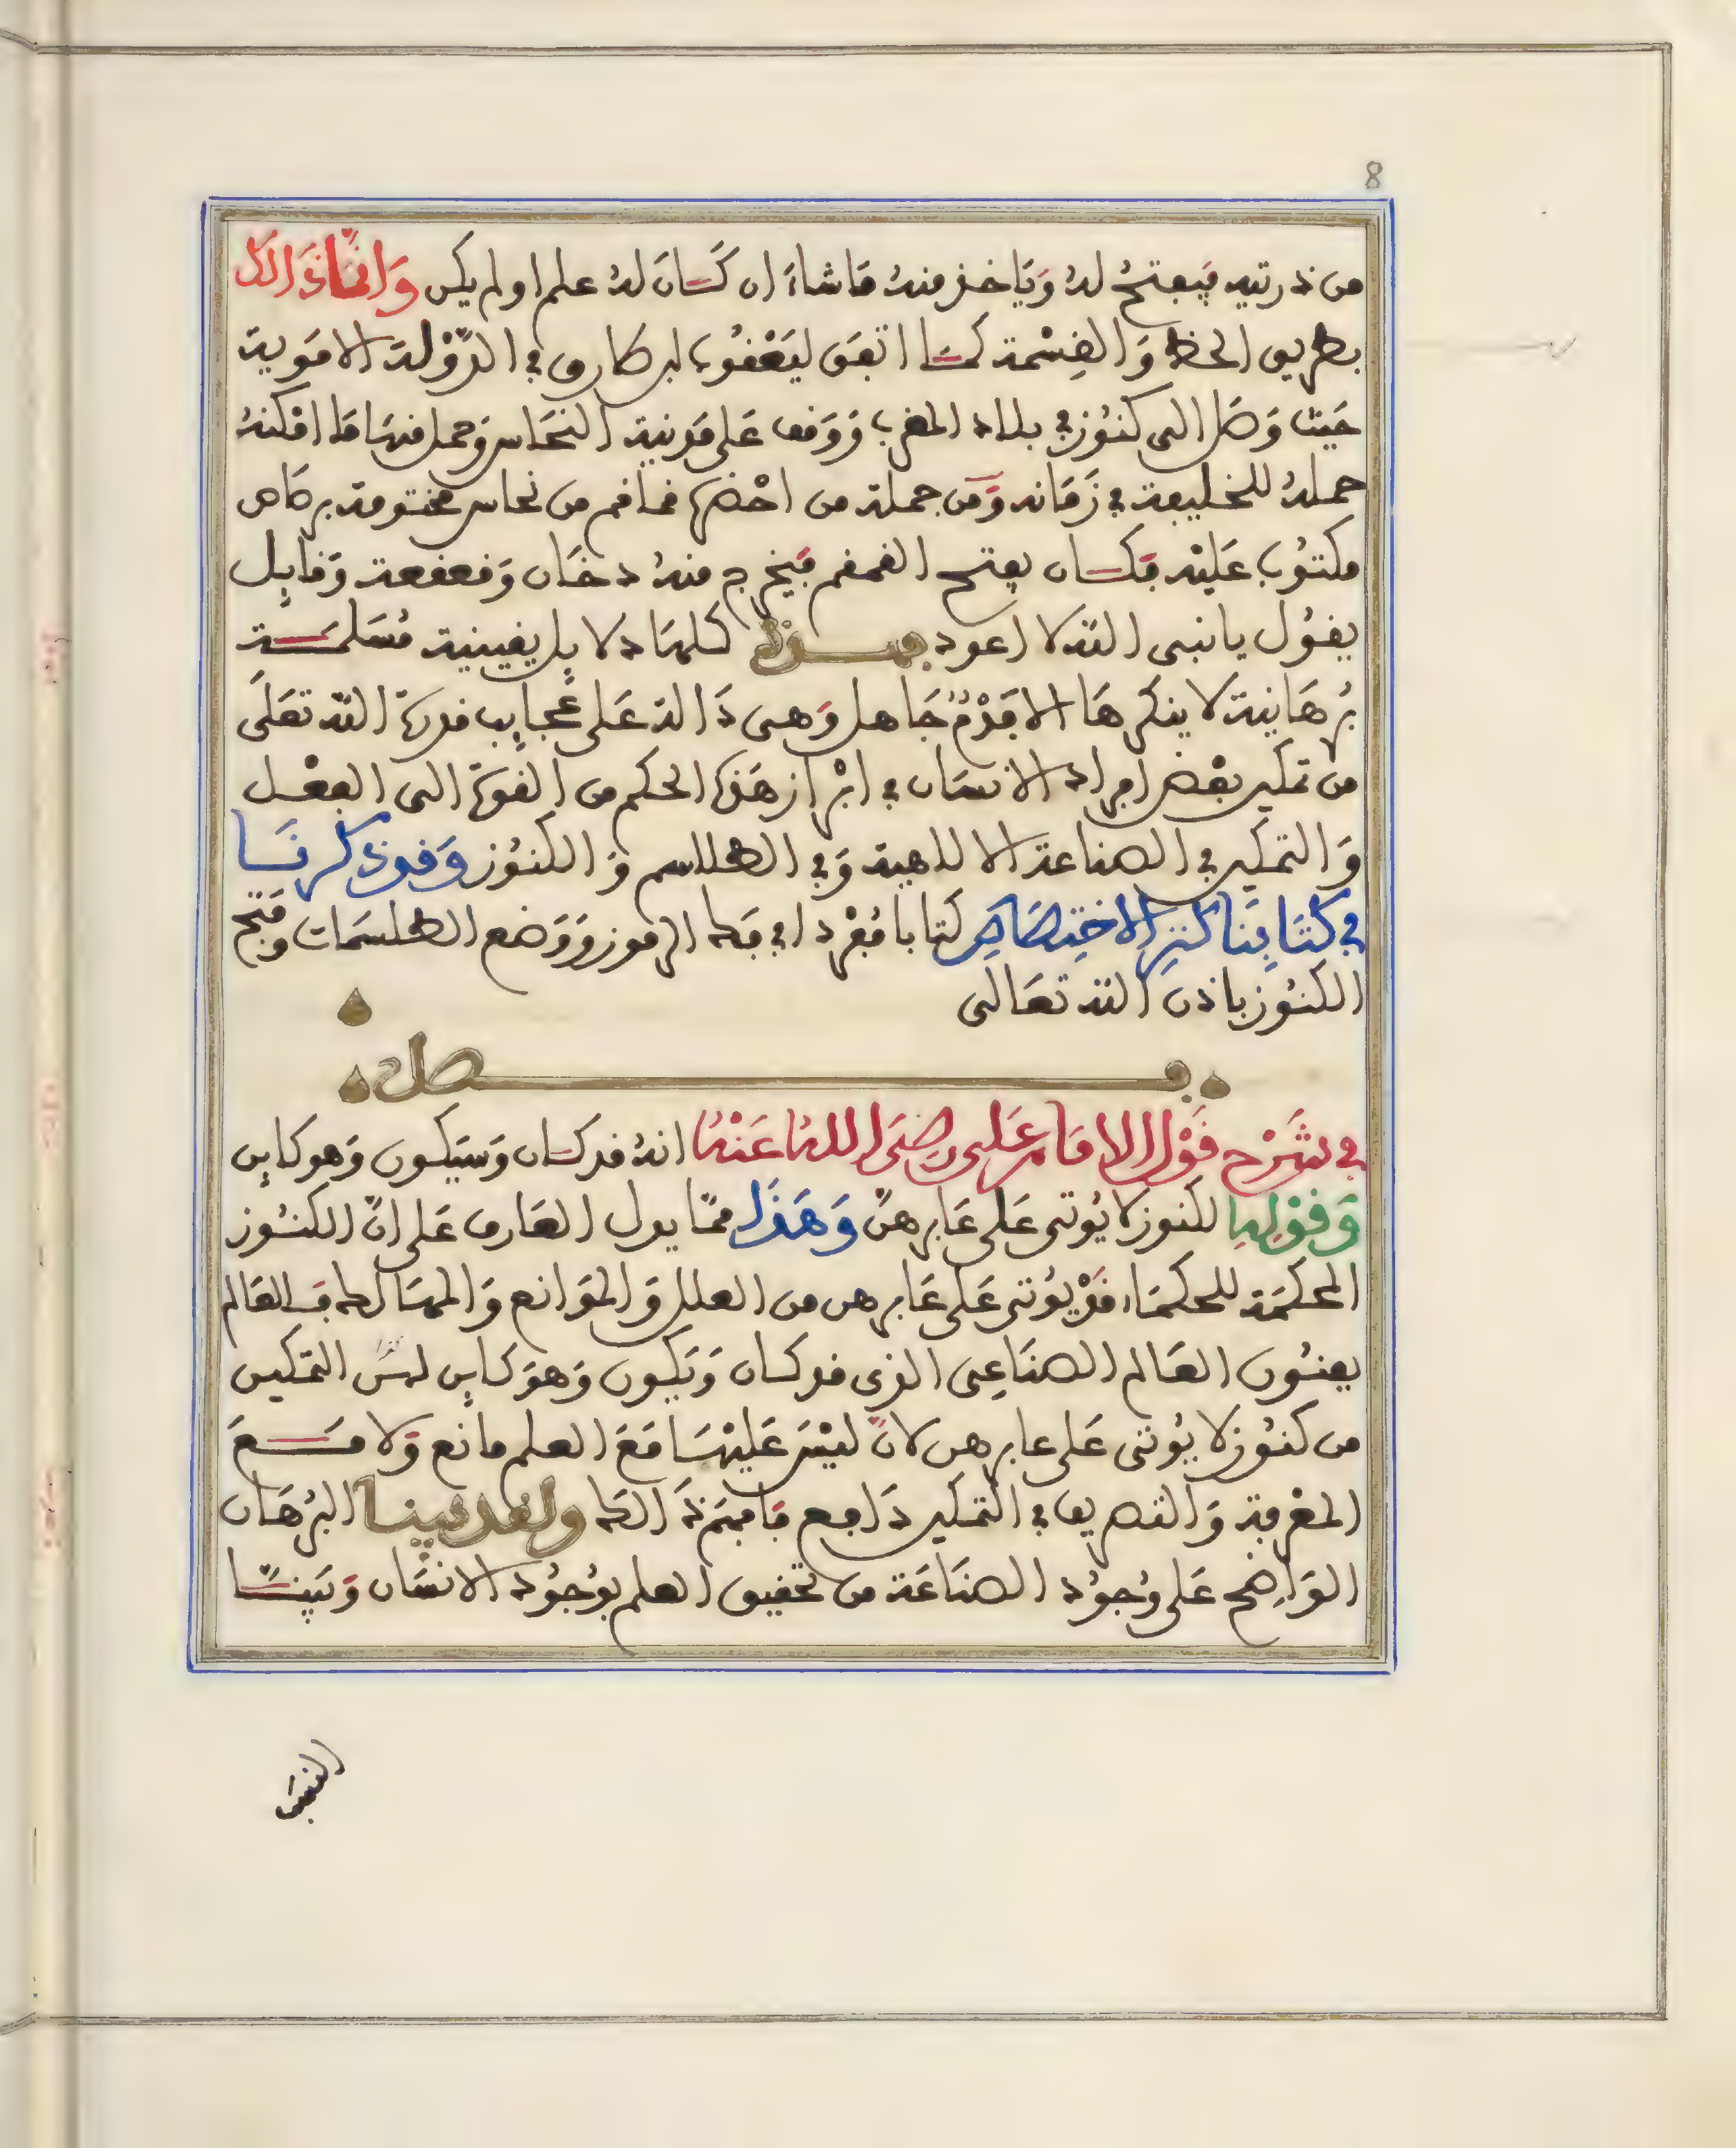 8
من ذريته فيفتح له وياخذ منه ما شاء ان كان له علم او لم يكن وانما ذالك
بطريق الحظ والقسمة كما اتفق ليعقوب ابن طارق في الدولة الاموية
حيث وصل الى كنوز في بلاد المغرب ووقف على مدينة النحاس وحمل منها ما امكنه
حمله للخليفة في زمانه ومن جملة من احضرها قماقم من نحاس مختومة برصاص
مكتوب عليه فكان يفتح القمقم فيخرج منه دخان وقعقعة وقايل
يقول يا نبي الله لا اعود فهذه كلها دلايل يقينية مسلمة
برهانية لا ينكرها الا فدم جاهل وهى دالة على عجايب قدرة الله تعلى
من تمكين بعض افراد الانسان في ابراز هذه الحكم من القوة الى الفعل
والتمكين في الصناعة الالاهية وفي الطلاسم والكنوز وقد ذكرنا
في كتابنا كنز الاختصاص كتابا مفردا في فك الرموز ووضع الطلسمات وفتح
الكنوز باذن الله تعالى
فصل
في شرح قول الامام على رضى الله عنه انه قد كان وسيكون وهو كاين
وقوله للكنوز لا يوتى على عابرهن وهذا مما يدل العارف على ان الكنوز
المحكمة للحكماء قد يوتى على عابرهن من العلل والموانع والمهالك فالعالم
يعنون العالم الصناعى الذى قد كان ويكون وهو كاين لمن التمكين
من كنوز لا يوتى على عابرهن لان ليس عليها مع العلم مانع ولا مع
المعرفة والتصريف في التمكين دافع فافهم ذالك ولقد بينا البرهان
الواضح على وجود الصناعة من تحقيق العلم بوجود الانسان وبينا